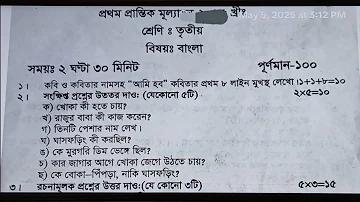 প্রথম প্রান্তিক মূল্যা
May 5, 2025 at 3:12 PM
শ্রেণি : তৃতীয়
বিষয়ঃ বাংলা
সময়ঃ ২ ঘণ্টা ৩০ মিনিট পূর্ণমান-১০০
১। কবি ও কবিতার নামসহ "আমি হব" কবিতার প্রথম ৮ লাইন মুখস্থ লেখো।১+১+৮=১০
২। সংক্ষিপ্ত প্রশ্নের উততর দাও: (যেকোনো ৫টি) ২×৫=১০
ক) খোকা কী হতে চায়?
খ) রাজুর বাবা কী কাজ করেন?
গ) তিনটি পেশার নাম লেখ।
ঘ) ঘাসফড়িং কী করছিল?
ঙ) কে মুরগরি ডিম ভেঙ্গে ছিল?
চ) কার জাগার আগে খোকা জেগে উঠতে চায়?
ছ) কে বোকা–পিঁপড়া, নাকি ঘাসফড়িং?
৩। রচনামূলক প্রশ্নের উত্তর দাও:(যে কোনো ৩টি) ৫×৩=১৫